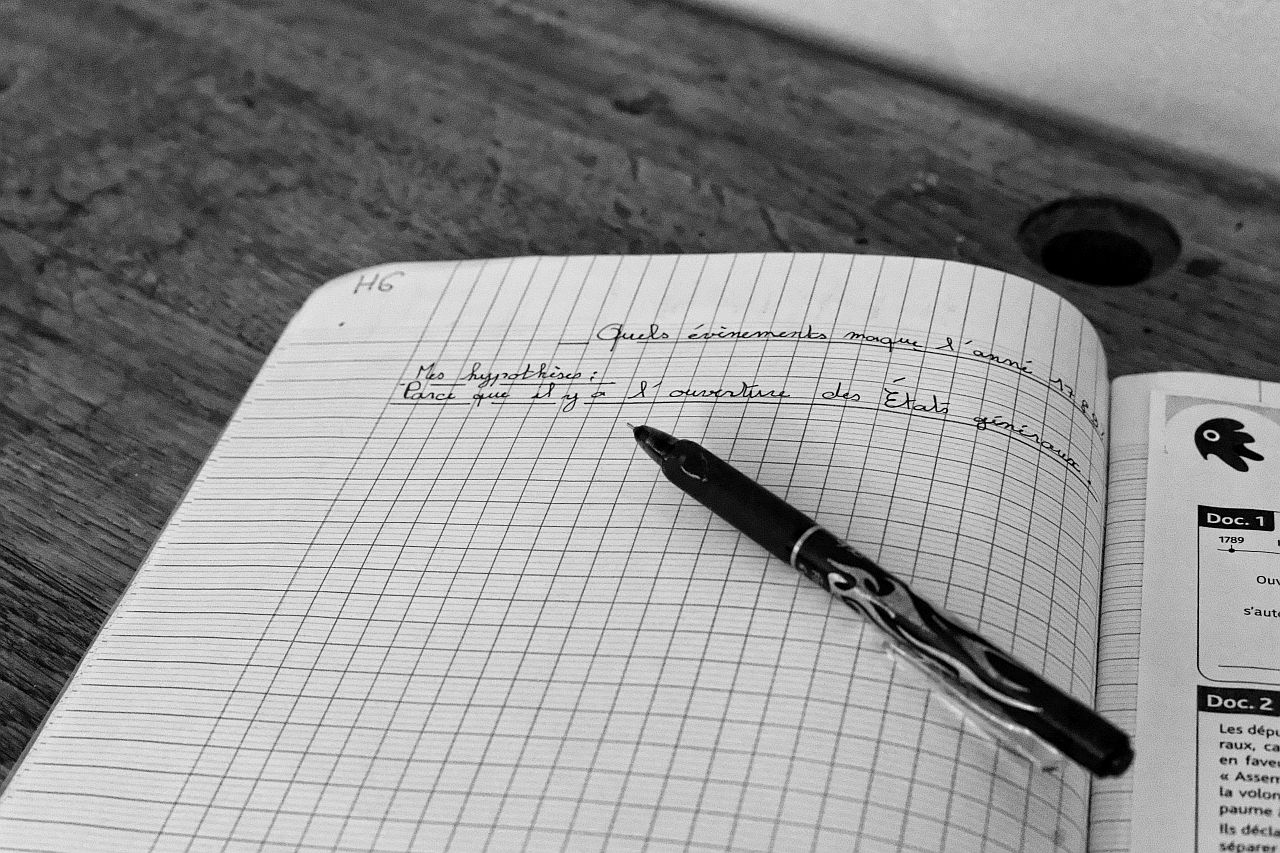 H6
Quels évènements maque l'anné 1789.
Mes hypothèses :
Parce que il y a l'ouverture des États généraux.
Doc. 1
1789
Ouv
s'auto
Doc. 2
Les dépu
raux, ca
en faveu
« Assem
la volon
paume
Ils décla
séparer